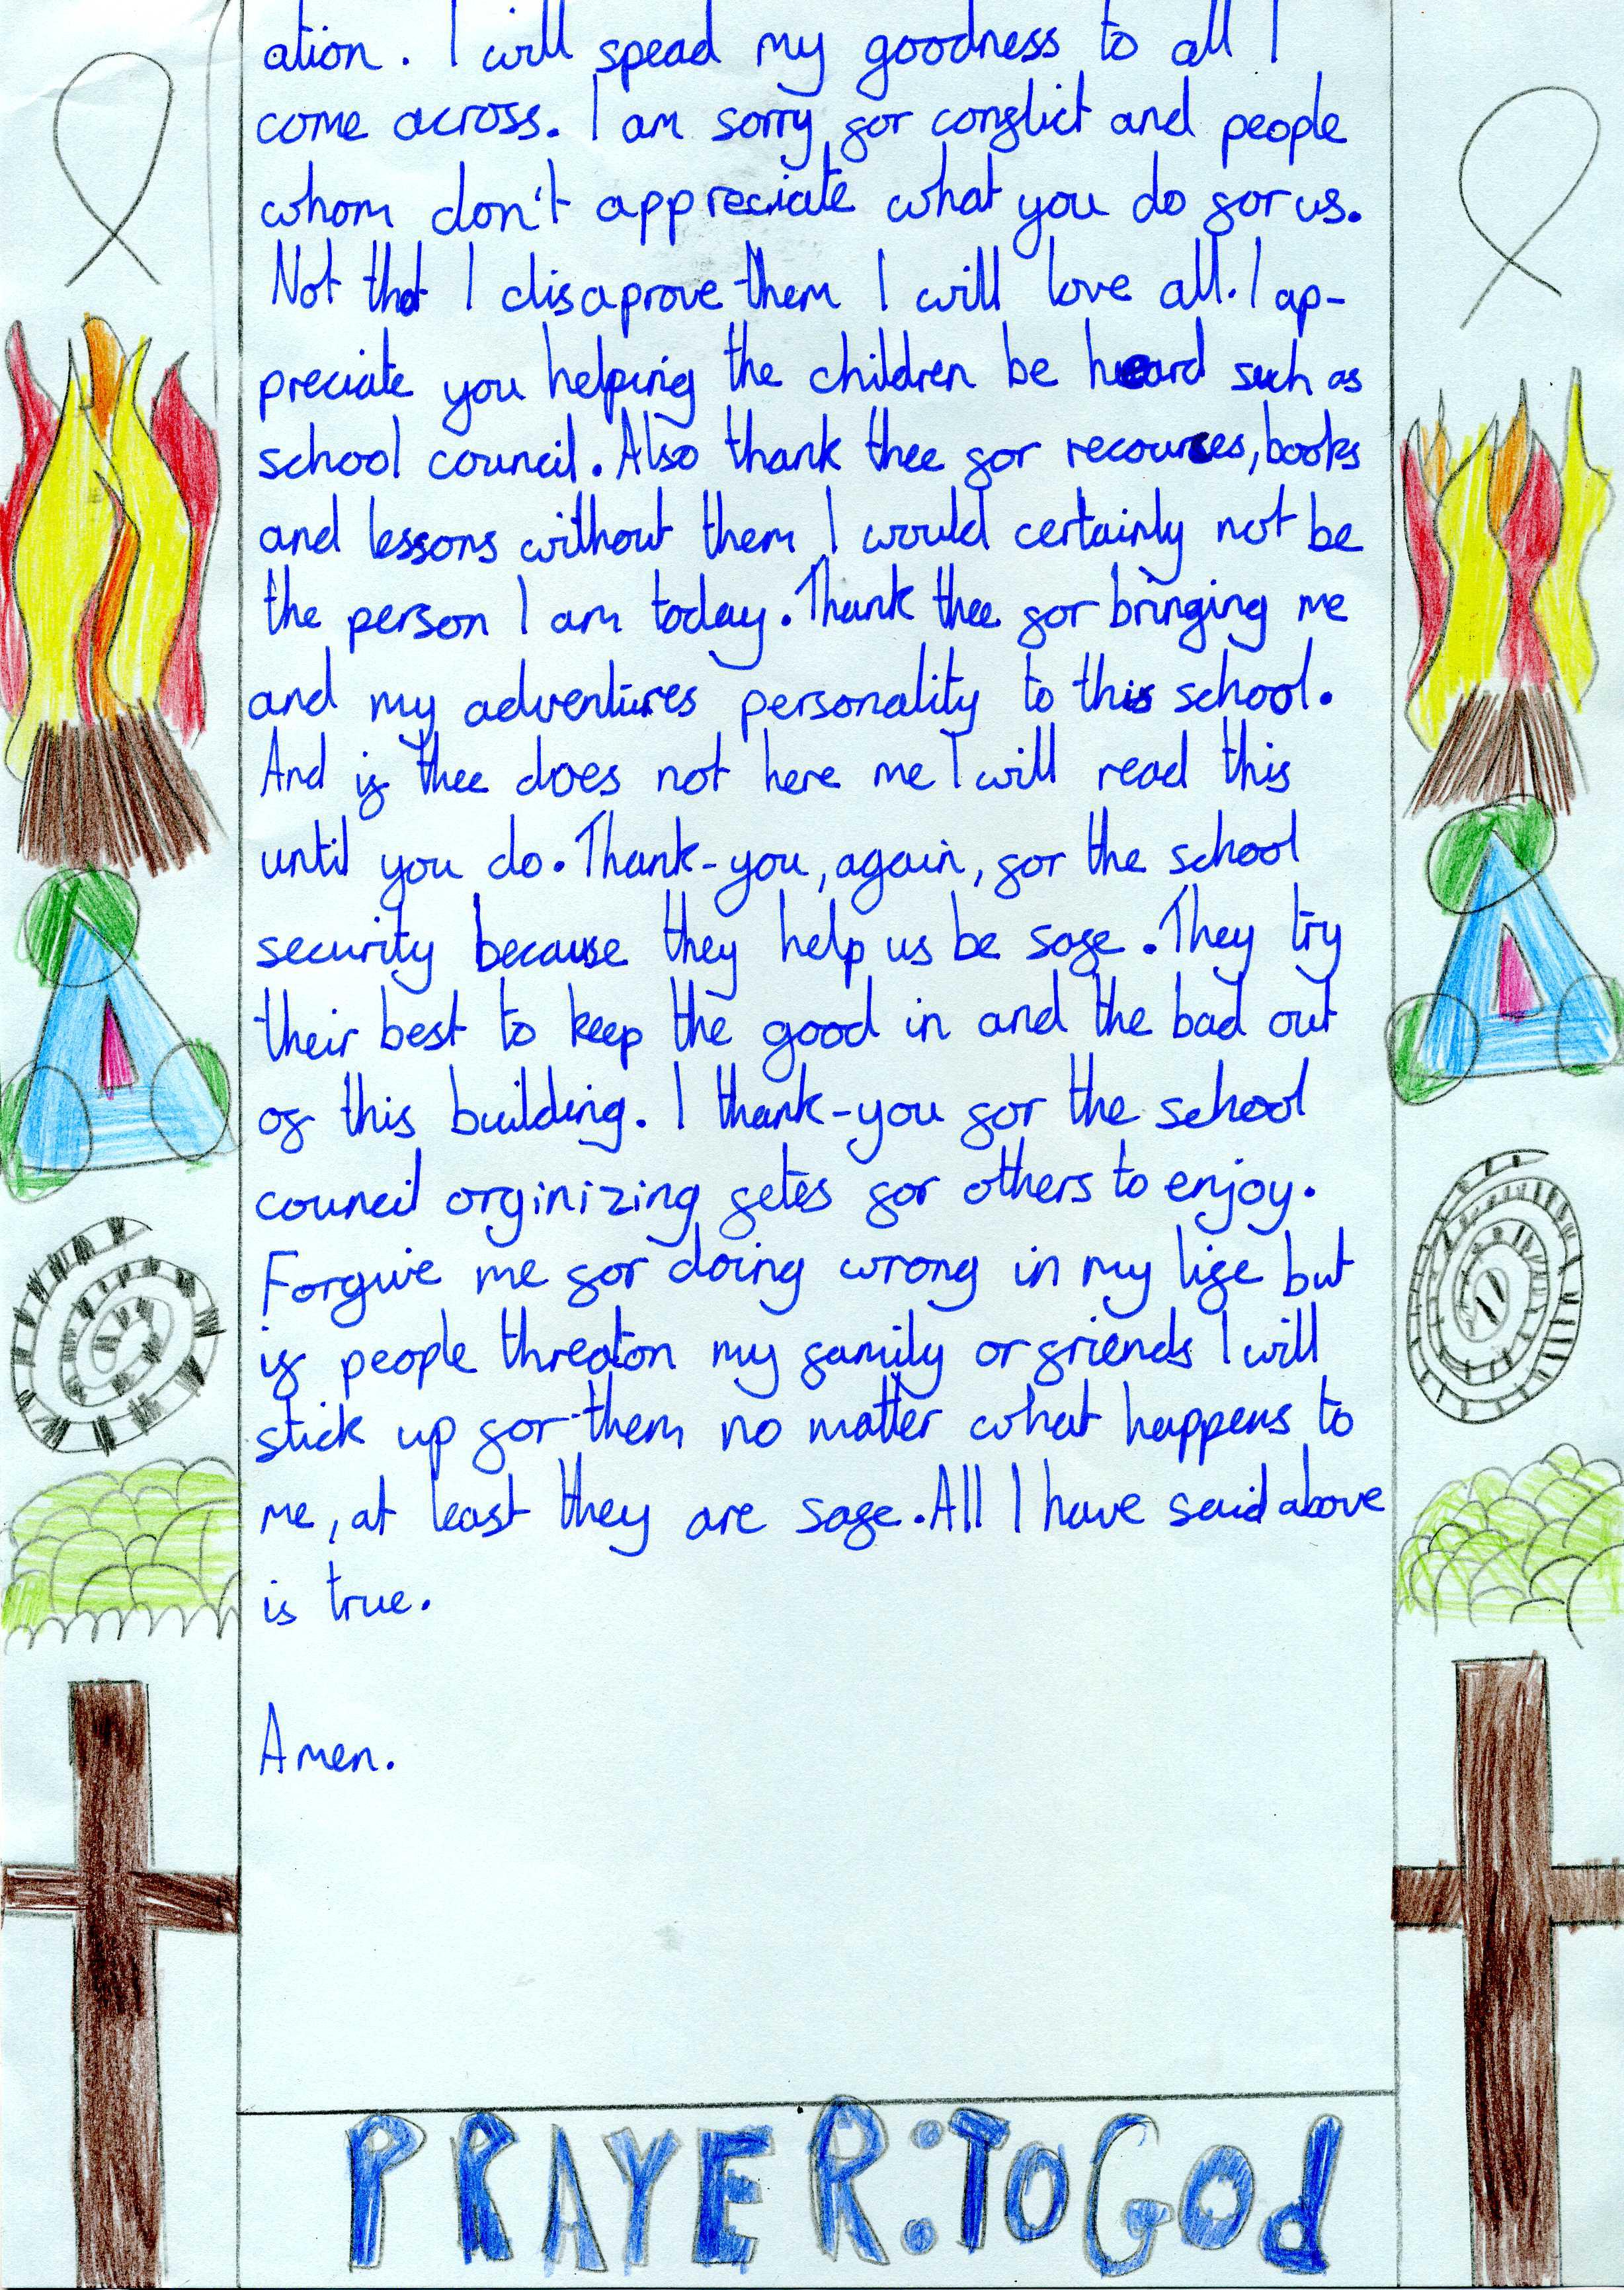 ation. I will spead my goodness to all I
come across. I am sorry for conflict and people
whom don't appreciate what you do for us.
Not that I disaprove them I will love all. I ap-
preciate you helping the children be heard such as
school council. Also thank thee for recources, books
and lessons without them I would certainly not be
the person I am today. Thank thee for bringing me
and my adventures personality to this school.
And if thee does not here me I will read this
until you do. Thank-you, again, for the school
security because they help us be safe. They try
their best to keep the good in and the bad out
of this building. I thank-you for the school
council orginizing fetes for others to enjoy.
Forgive me for doing wrong in my life but
if people threaton my family or friends I will
stick up for them no matter what happens to
me, at least they are safe. All I have said above
is true.
Amen.
PRAYER: To God